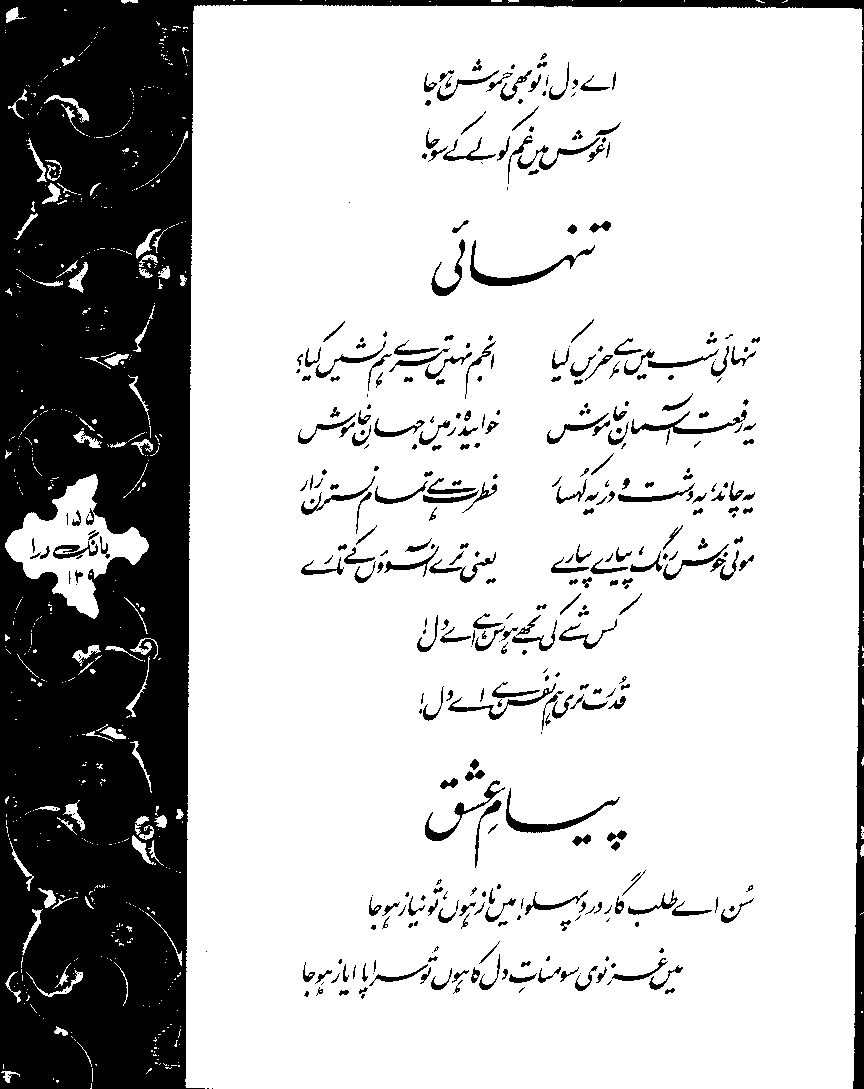 اے دل! تُو بھی خموش ہو جا
آغوش میں غم کو لے کے سو جا
تنہائی
تنہائیِ شب میں ہے حزیں کیا انجم نہیں تیرے ہم نشیں کیا؟
یہ رفعتِ آسمانِ خاموش خوابیدہ زمیں، جہانِ خاموش
یہ چاند، یہ دشت و در، یہ کُہسار فطرت ہے تمام نسترن زار
موتی خوش رنگ، پیارے پیارے یعنی ترے آنسوؤں کے تارے
کس شے کی تجھے ہوَس ہے اے دل!
قُدرت تری ہم نفَس ہے اے دل!
پیامِ عشق
سُن اے طلب گارِ دردِ پہلو! میں ناز ہُوں، تُو نیاز ہو جا
میں غزنوی سومناتِ دل کا ہوں تُو سراپا ایاز ہو جا
۱۵۵
بانگِ درا
۱۳۹